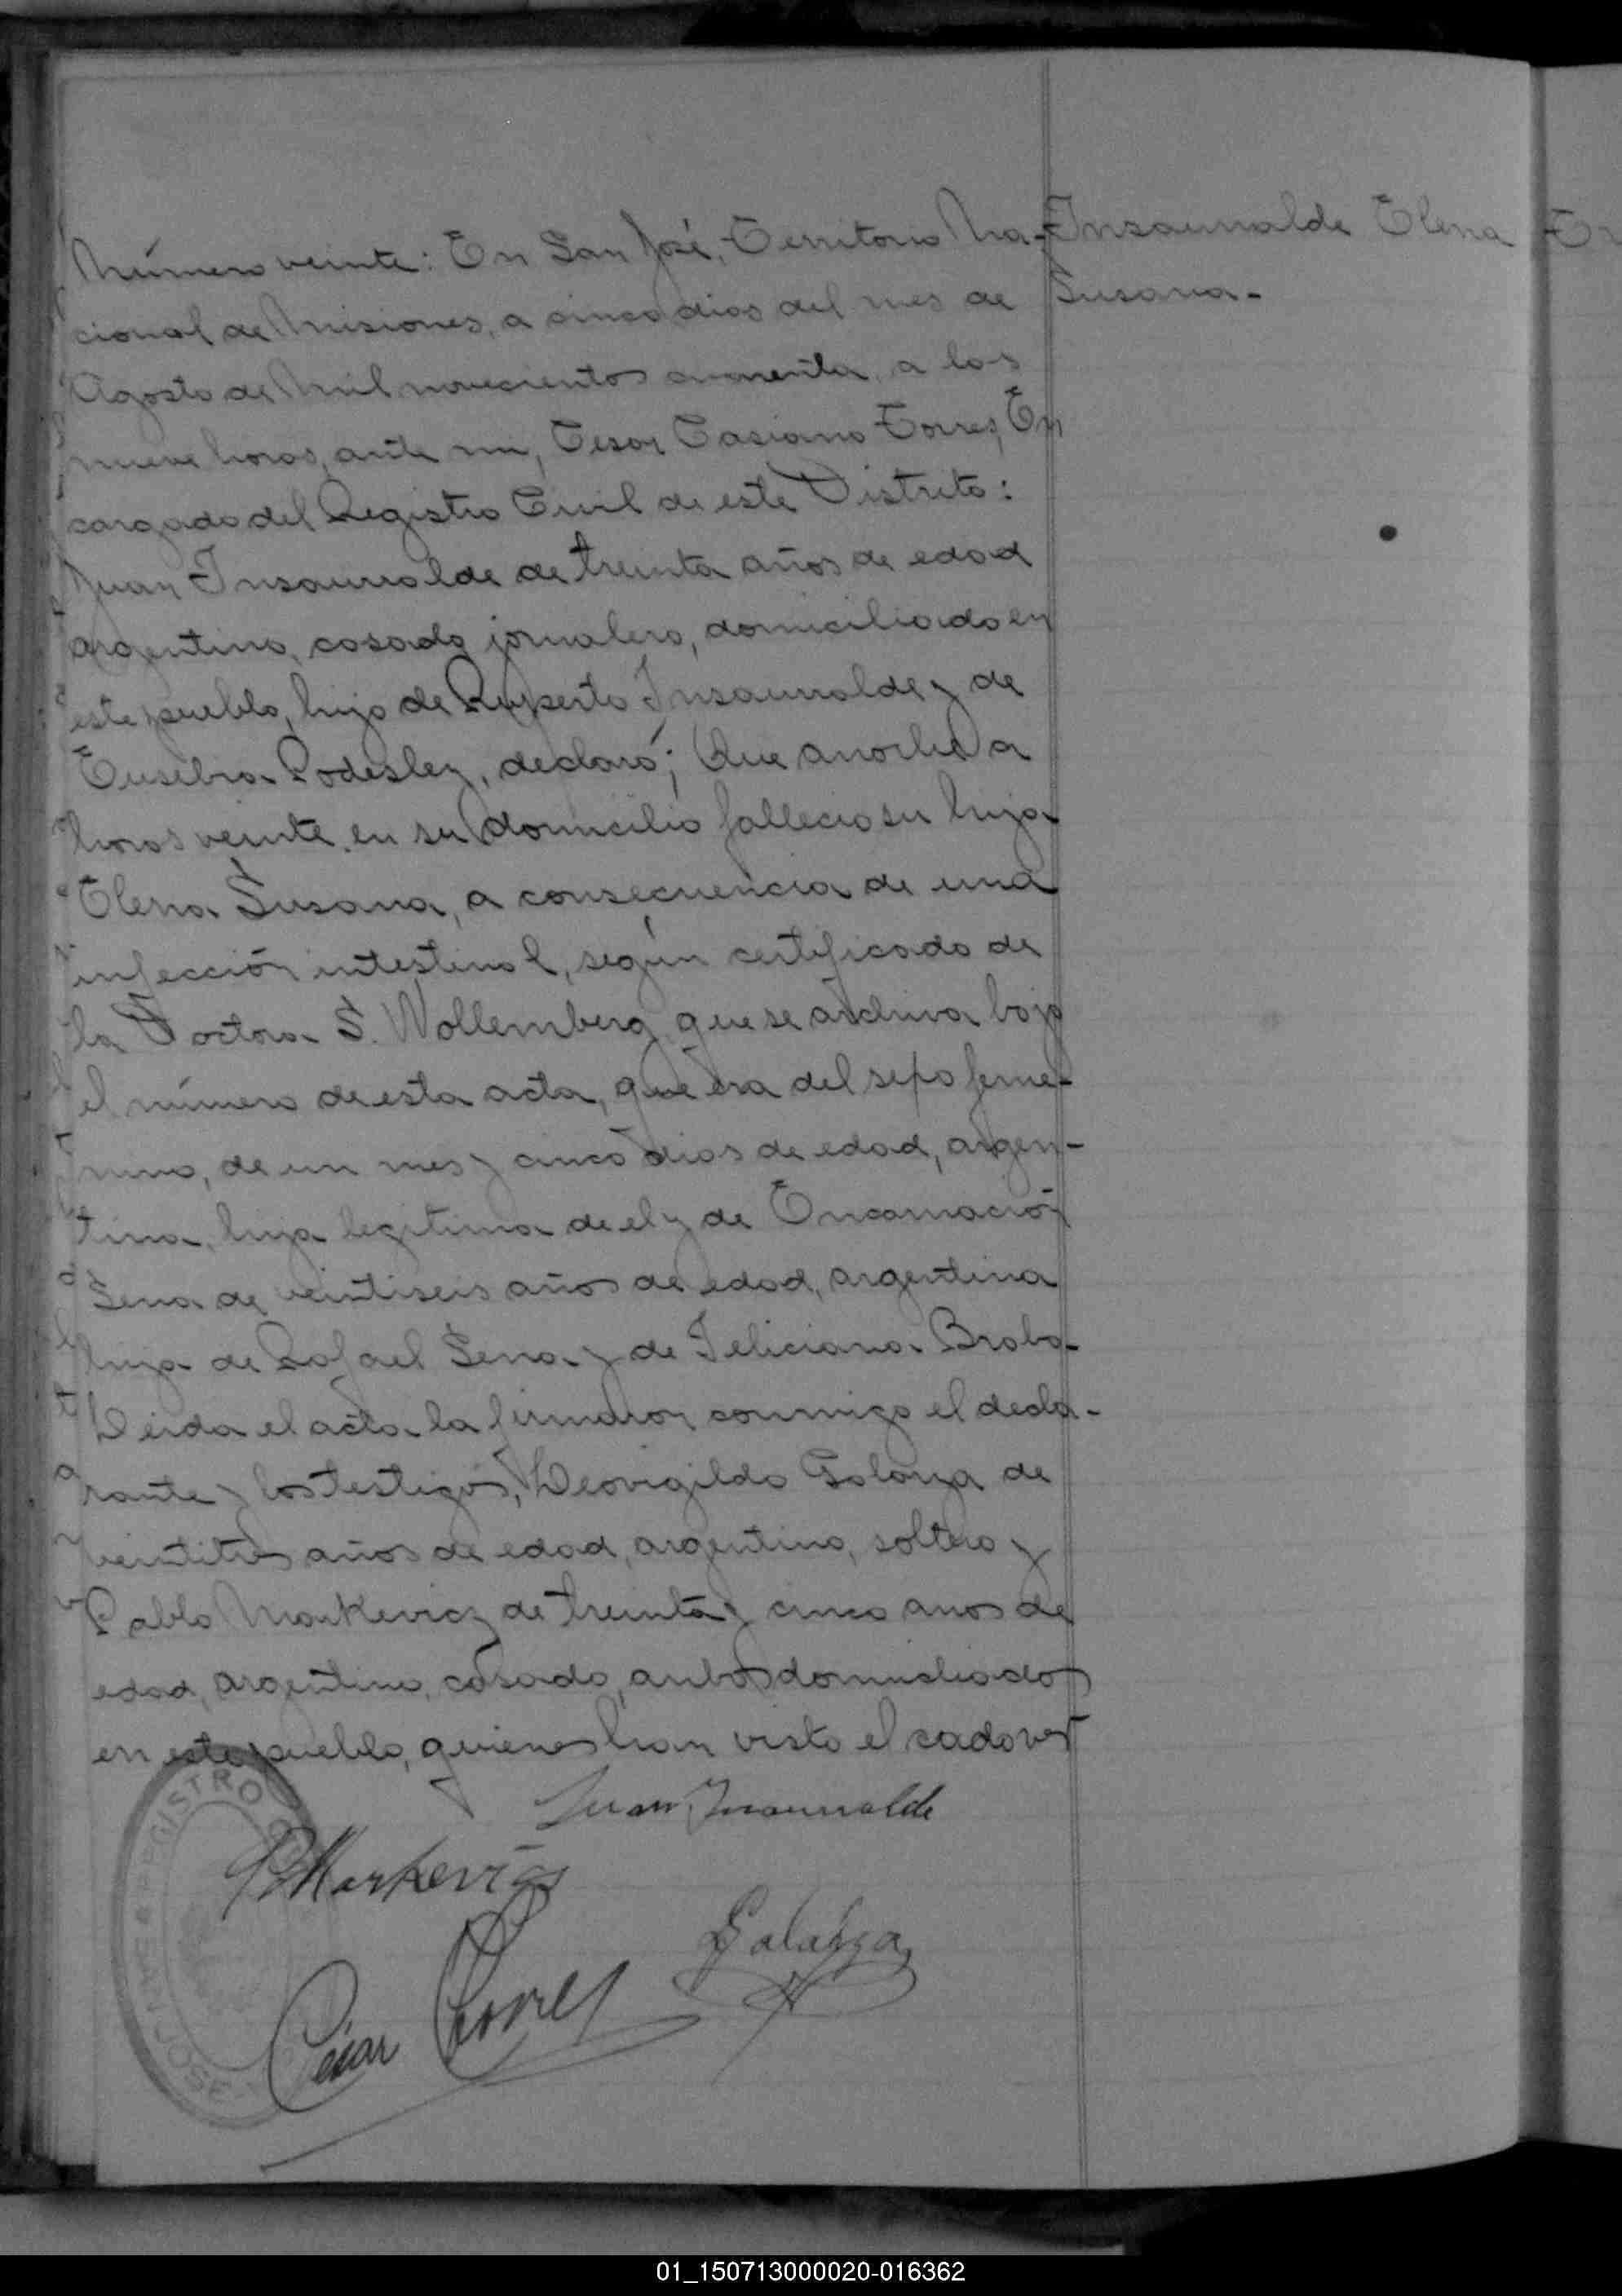 Número veinte: En San José, Territorio Na-
cional de Misiones, a cinco dias del mes de
Agosto de Mil novecientos cuarenta, a las
nueve horas, ante mi, Cesar Casiano Torres, En
cargado del Registro Civil de este Distrito:
Juan Insaurralde de treinta años de edad
argentino, casado, jornalero, domiciliado en
este pueblo, hijo de Ruperto Insaurralde y de
Eusebia declaró; Que anoche a
horas veinte, en su domicilio fallecio su hija
Elena Susana, a consecuencia de una
infección intestinal, según certificado de
la Doctora S. Wollemberg que se archiva bajo
el número de esta acta, que era del sexo feme-
nino, de un mes y cinco dias de edad, argen-
tina, hija legitima de el y de Encarnación
Sena de veintiseis años de edad, argentina
hija de Rafael Sena y de Feliciana
Leida el acta la firmaron conmigo el decla-
rante y los testigos, Leovigildo Galarza de
veintitres años de edad, argentino, soltero y
Pablo Markevicz de treinta y cinco años de
edad, argentino, casado, ambos domiciliados
en este pueblo, quienes han visto el cadaver
Insaurralde Elena
Susana-
Juan Insaurralde
P Markevics
Galarza
César Torres
REGISTRO
SAN JOSE
01_150713000020-016362